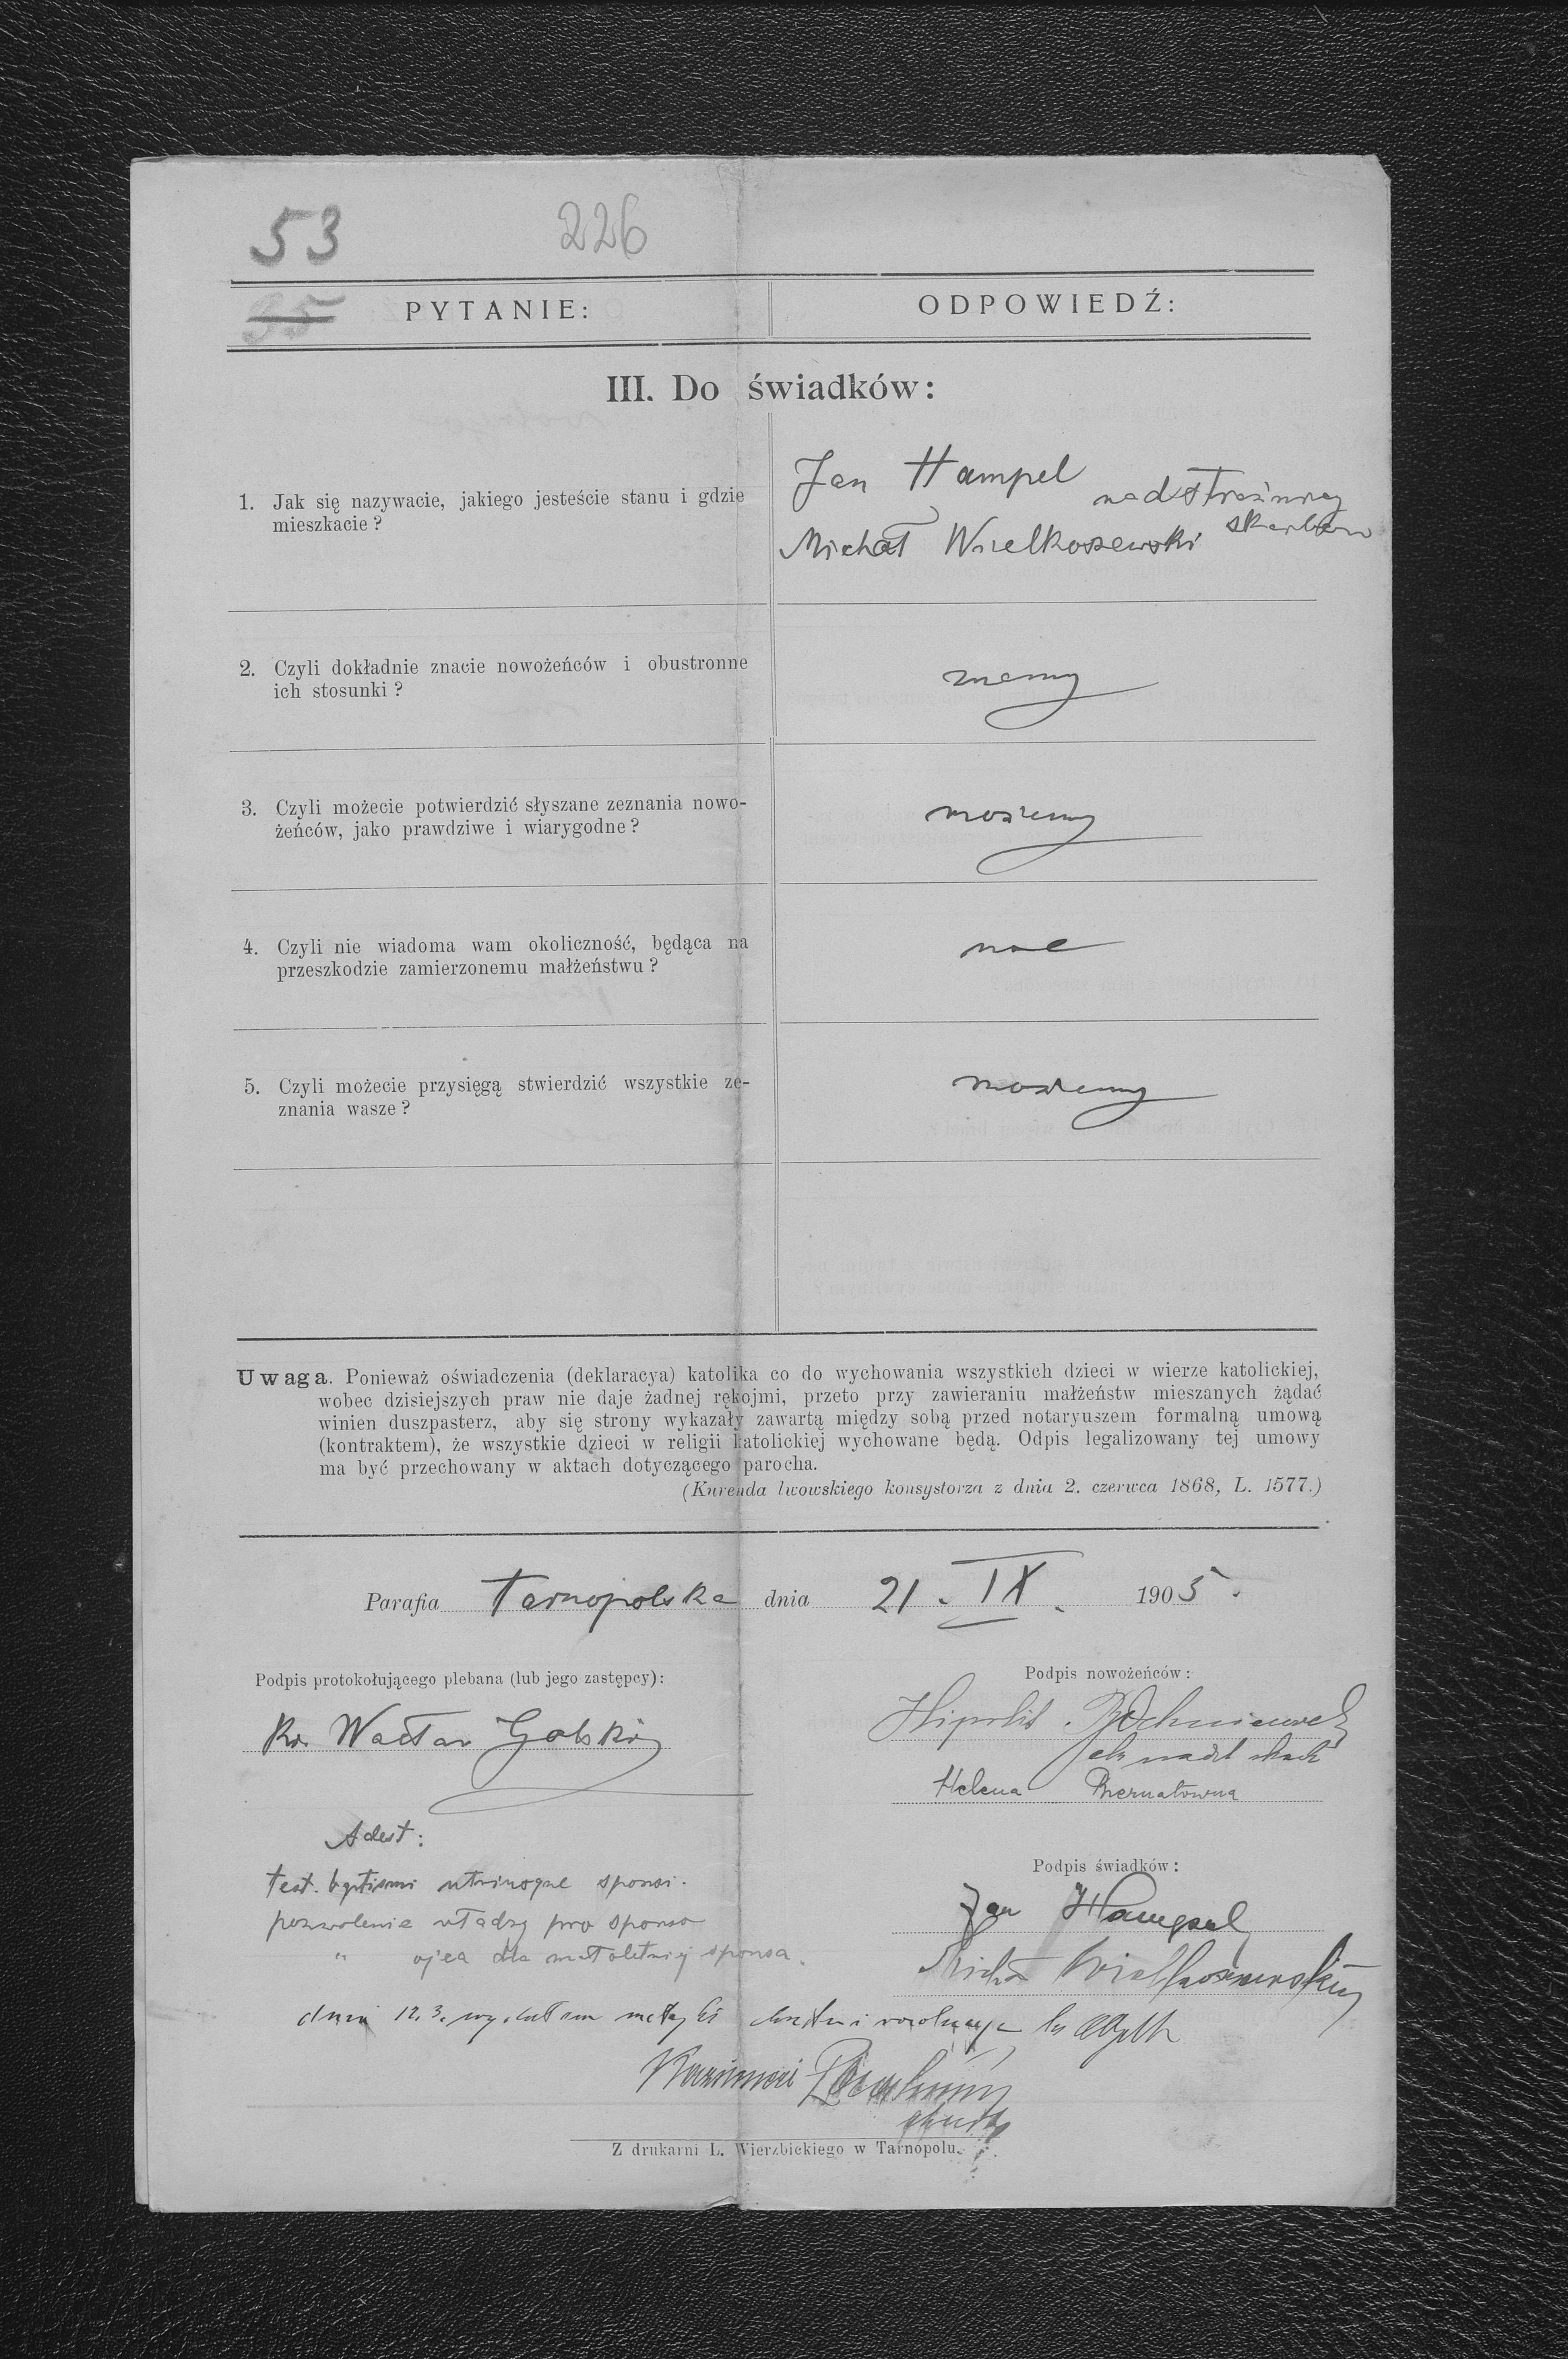 53 226
35
PYTANIE: ODPOWIEDŹ:
III. Do świadków:
1. Jak się nazywacie, jakiego jesteście stanu i gdzie
mieszkacie?
Jan Hampel nadstrażnicy
Michał Wielkoszewski skarbow
2. Czyli dokładnie znacie nowożeńców i obustronne
ich stosunki?
znamy
3. Czyli możecie potwierdzić słyszane zeznania nowo-
żeńców, jako prawdziwe i wiarygodne?
możemy
4. Czyli nie wiadoma wam okoliczność, będąca na
przeszkodzie zamierzonemu małżeństwu?
nie
5. Czyli możecie przysięgą stwierdzić wszystkie ze-
znania wasze?
możemy
Uwaga. Ponieważ oświadczenia (deklaracya) katolika co do wychowania wszystkich dzieci w wierze katolickiej,
wobec dzisiejszych praw nie daje żadnej rękojmi, przeto przy zawieraniu małżeństw mieszanych żądać
winien duszpasterz, aby się strony wykazały zawartą między sobą przed notaryuszem formalną umową
(kontraktem), że wszystkie dzieci w religii katolickiej wychowane będą. Odpis legalizowany tej umowy
ma być przechowany w aktach dotyczącego parocha.
(Kurenda lwowskiego konsystorza z dnia 2. czerwca 1868, L. 1577.)
Parafia Tarnopolska dnia 21. IX. 1905.
Podpis protokołującego plebana (lub jego zastępcy):
Ks. Wacław Golski
Podpis nowożeńców:
Hipolit
Helena Biernatowna
Adest:
test. baptismi utriusque sponsi.
pozwolenie władzy pro sponso
" ojca dla małoletniej sponsa.
Podpis świadków:
Jan Hampel
Michał Wielkoszewski
dnia 12.3.
Z drukarni L. Wierzbickiego w Tarnopolu.